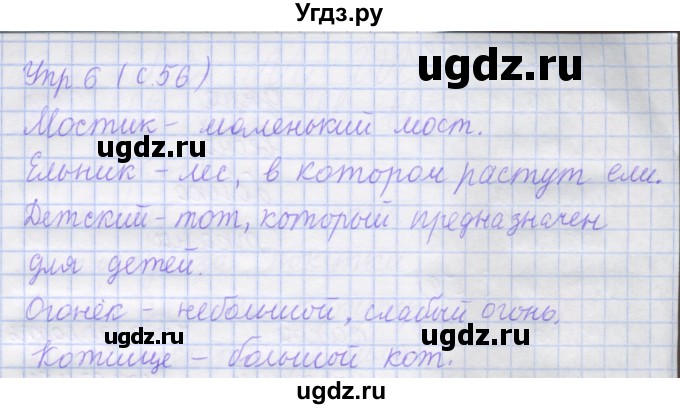 Угдз.ру
ugdz.ru
Упр 6 (с 56)
ugdz.ru
Мостик - маленький мост.
ugdz.ru
Ельник - лес, в котором растут ели.
Детский - тот, который предназначен
ugdz.ru
для детей.
Огонёк - небольшой, слабый огонь.
ugdz.ru ugdz.ru
Котище - большой кот.
ugdz.ru